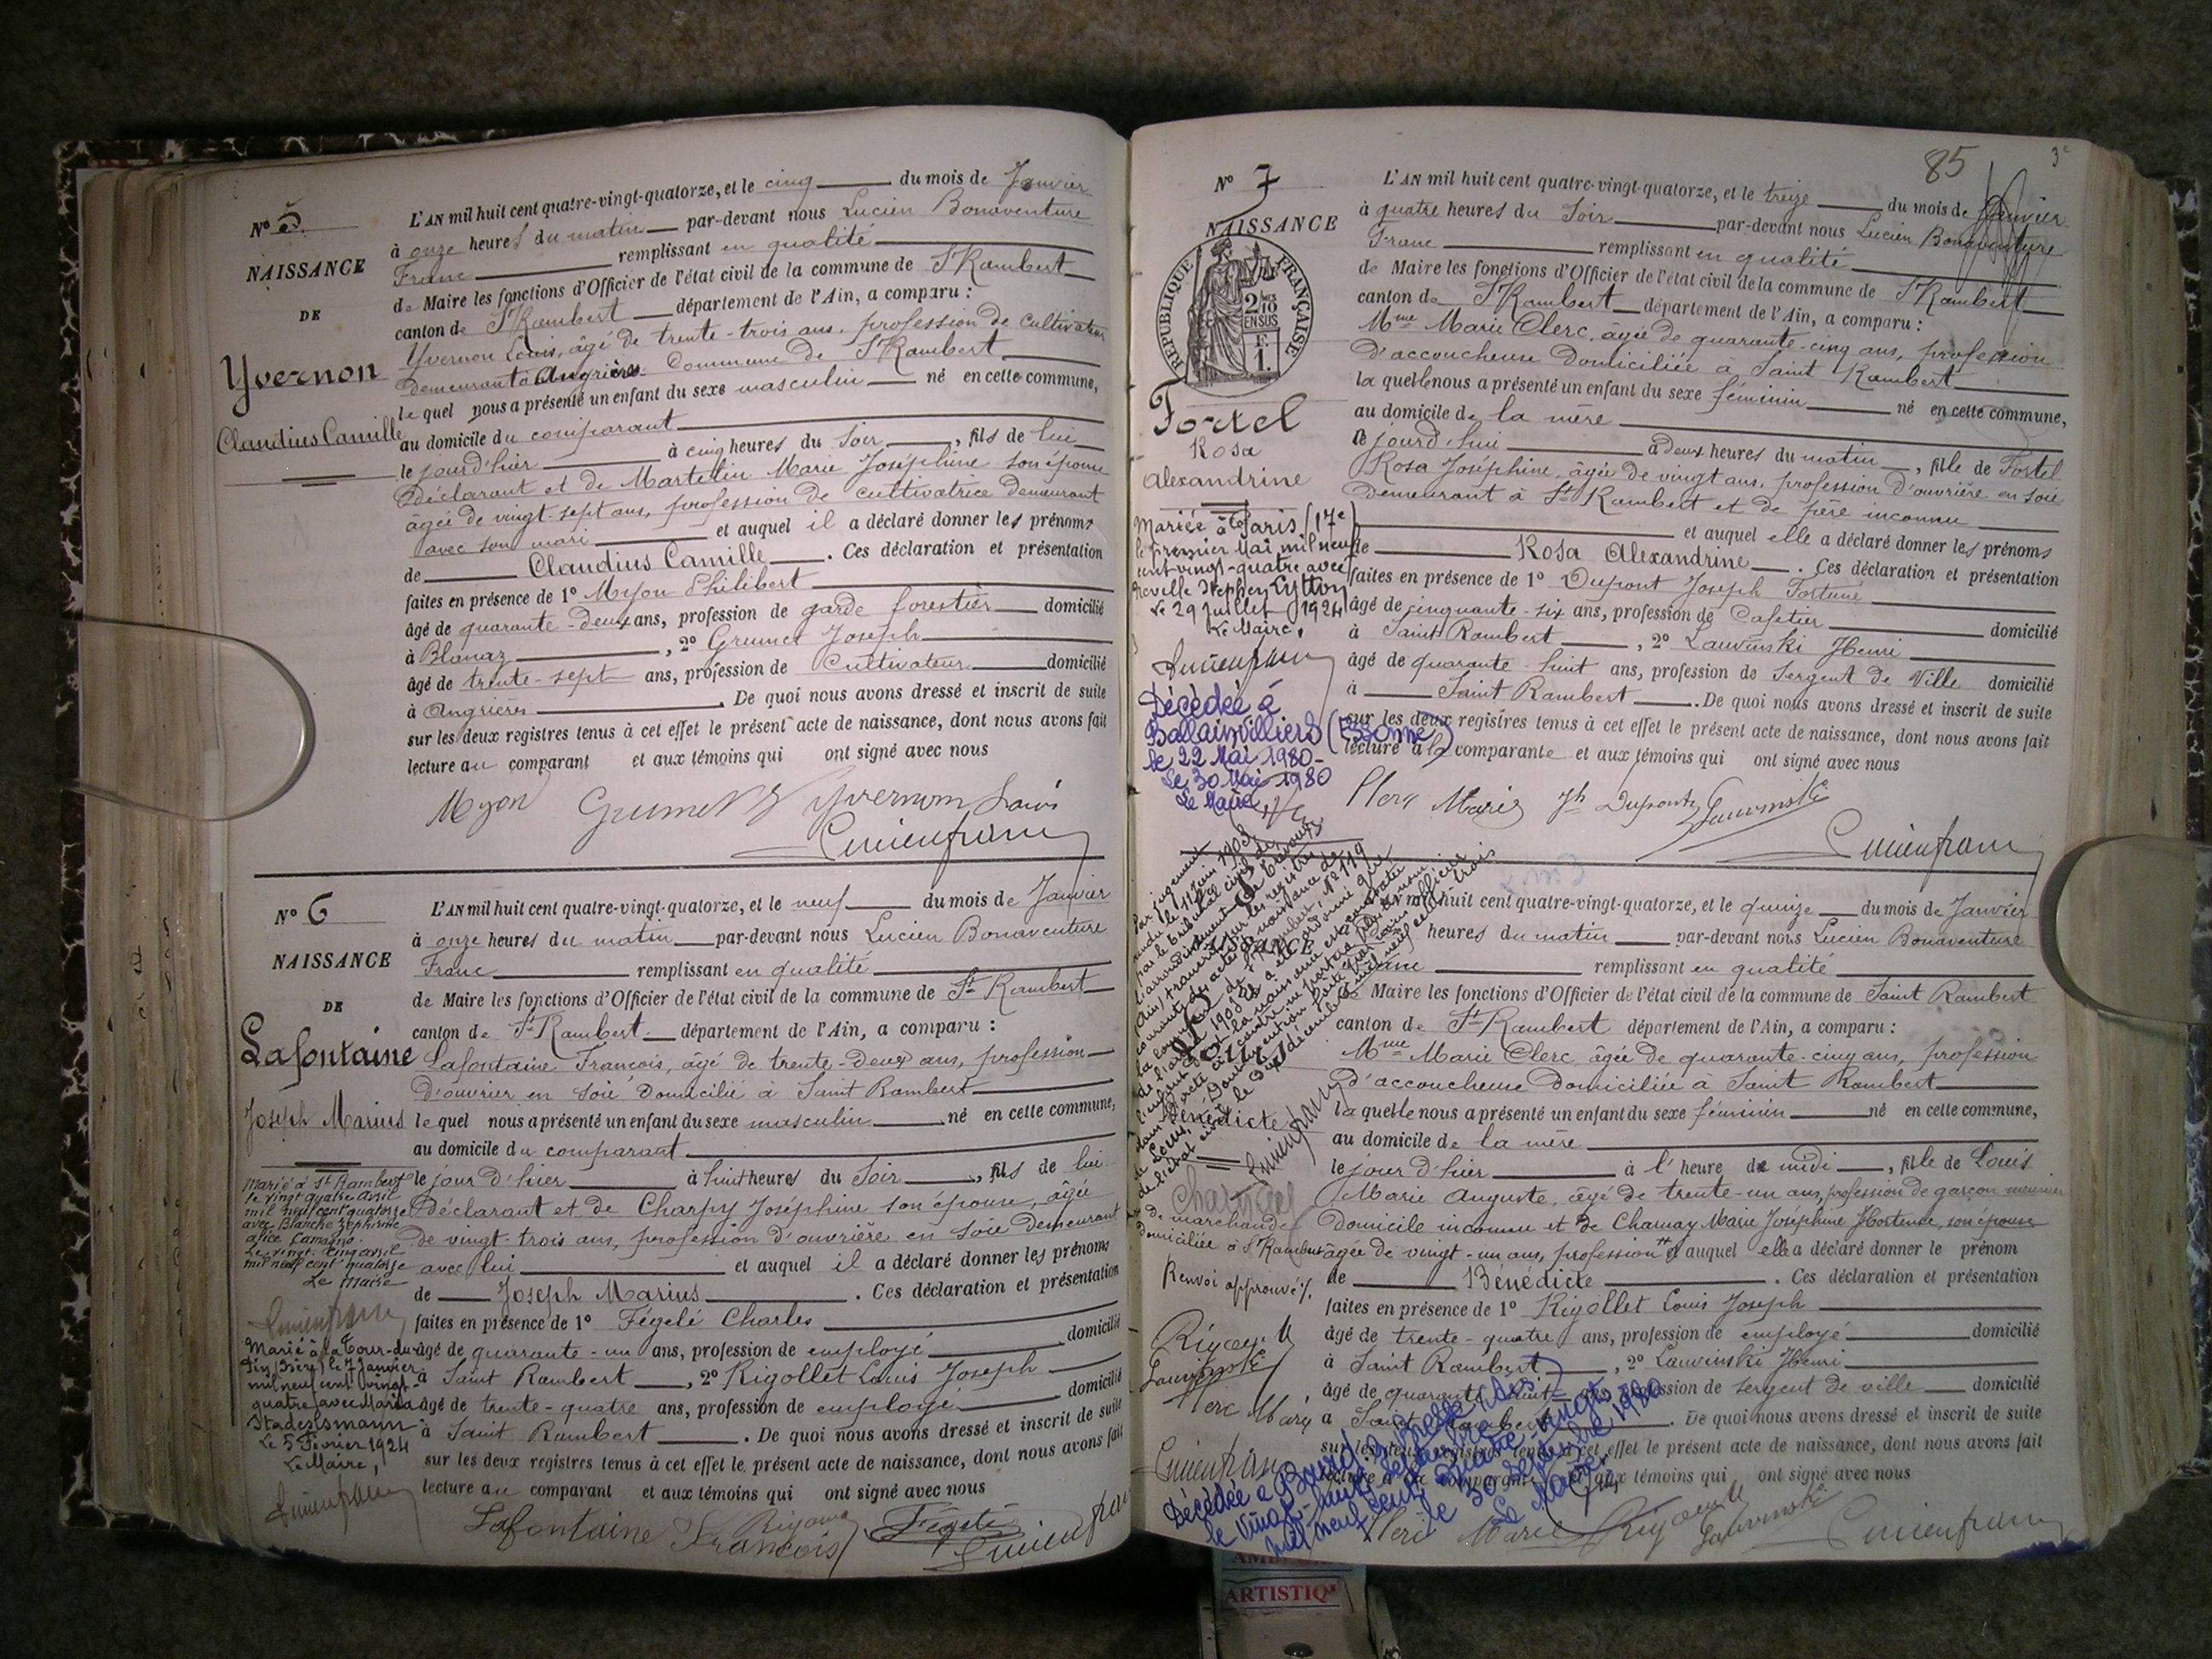 N° 5
NAISSANCE
DE
Yvernon
Claudius Camille
L'AN mil huit cent quatre-vingt-quatorze, et le cinq du mois de Janvier
à onze heures du matin par-devant nous Lucien Bonaventure
Franc remplissant en qualité
de Maire les fonctions d'Officier de l'état civil de la commune de St Rambert
canton de St Rambert département de l'Ain, a comparu :
Yvernon Louis, âgé de trente-trois ans, profession de cultivateur
demeurant à Angrières Commune de St Rambert
le quel nous a présenté un enfant du sexe masculin né en cette commune,
au domicile du comparant
le jour d'hier à cinq heures du soir, fils de lui
déclarant et de Martelin Marie Joséphine son épouse
âgée de vingt-sept ans, profession de cultivatrice demeurant
avec son mari et auquel il a déclaré donner les prénoms
de Claudius Camille. Ces déclaration et présentation
faites en présence de 1° Myon Philibert
âgé de quarante-deux ans, profession de garde forestier domicilié
à Blanaz, 2° Grumet Joseph
âgé de trente-sept ans, profession de Cultivateur domicilié
à Angrières. De quoi nous avons dressé et inscrit de suite
sur les deux registres tenus à cet effet le présent acte de naissance, dont nous avons fait
lecture au comparant et aux témoins qui ont signé avec nous
Myon Grumet J Yvernon Louis
Lucien franc
N° 6
NAISSANCE
DE
Lafontaine
Joseph Marius
Marié à St Rambert
le vingt quatre avril
mil neuf cent quatorze
avec Blanche Zéphirine
Alice Camagno.
Le vingt-cinq avril
mil neuf cent quatorze
Le Maire
Lucien franc
Marié à la Tour-du-
Pin (Isère) le 7 Janvier
mil neuf cent vingt-
quatre avec Maria
Stadeslsmann
Le 5 Février 1924
Le Maire,
Lucien franc
L'AN mil huit cent quatre-vingt-quatorze, et le neuf du mois de Janvier
à onze heures du matin par-devant nous Lucien Bonaventure
Franc remplissant en qualité
de Maire les fonctions d'Officier de l'état civil de la commune de St Rambert
canton de St Rambert département de l'Ain, a comparu :
Lafontaine François, âgé de trente-deux ans, profession
d'ouvrier en soie domicilié à Saint Rambert
le quel nous a présenté un enfant du sexe masculin né en cette commune,
au domicile du comparant
le jour d'hier à huit heures du soir, fils de lui
déclarant et de Charpy Joséphine son épouse, âgée
de vingt-trois ans, profession d'ouvrière en soie demeurant
avec lui et auquel il a déclaré donner les prénoms
de Joseph Marius. Ces déclaration et présentation
faites en présence de 1° Fégelé Charles
âgé de quarante-un ans, profession de employé domicilié
à Saint Rambert, 2° Rigollet Louis Joseph
âgé de trente-quatre ans, profession de employé domicilié
à Saint Rambert. De quoi nous avons dressé et inscrit de suite
sur les deux registres tenus à cet effet le présent acte de naissance, dont nous avons fait
lecture au comparant et aux témoins qui ont signé avec nous
Lafontaine François Fégelé
Lucien franc
85
3e
N° 7
NAISSANCE
RÉPUBLIQUE FRANÇAISE
2/10
EN SUS
F.
1.
Fortel
Rosa
Alexandrine
Mariée à Paris (17e)
le premier Mai mil neuf
cent vingt-quatre avec
Neville Stephen Lytton
Le 29 Juillet 1924
Le Maire,
Lucien franc
Décédée à
Ballainvilliers (Essonne)
le 22 Mai 1980-
Le 30 Mai 1980
Le Maire
L'AN mil huit cent quatre-vingt-quatorze, et le treize du mois de Janvier
à quatre heures du soir par-devant nous Lucien Bonaventure
Franc remplissant en qualité
de Maire les fonctions d'Officier de l'état civil de la commune de St Rambert
canton de St Rambert département de l'Ain, a comparu :
Mme Marie Clerc, âgée de quarante-cinq ans, profession
d'accoucheuse domiciliée à Saint Rambert
la quelle nous a présenté un enfant du sexe féminin né en cette commune,
au domicile de la mère
le jourd'hui à deux heures du matin, fille de Fortel
Rosa Joséphine, âgée de vingt ans, profession d'ouvrière en soie
demeurant à St Rambert et de père inconnu
et auquel elle a déclaré donner les prénoms
de Rosa Alexandrine. Ces déclaration et présentation
faites en présence de 1° Dupont Joseph Fortuné
âgé de cinquante-six ans, profession de Cafetier domicilié
à Saint Rambert, 2° Lauvinski Henri
âgé de quarante-huit ans, profession de Sergent de Ville domicilié
à Saint Rambert. De quoi nous avons dressé et inscrit de suite
sur les deux registres tenus à cet effet le présent acte de naissance, dont nous avons fait
lecture à la comparante et aux témoins qui ont signé avec nous
Clerc Marie Jh Dupont Lauvinski
Lucien franc
NAISSANCE
Bénédicte
Lucien franc
de marchande
domiciliée à St Rambert
Renvoi approuvé
Lauvinski
Clerc Marie
Lucien franc
mil huit cent quatre-vingt-quatorze, et le quinze du mois de Janvier
heures du matin par-devant nous Lucien Bonaventure
Franc remplissant en qualité
de Maire les fonctions d'Officier de l'état civil de la commune de Saint Rambert
canton de St Rambert département de l'Ain, a comparu :
Mme Marie Clerc âgée de quarante-cinq ans, profession
d'accoucheuse domiciliée à Saint Rambert
la quelle nous a présenté un enfant du sexe féminin né en cette commune,
au domicile de la mère
le jour d'hier à l'heure de midi, fille de Louis
Marie Auguste, âgé de trente-un ans, profession de garçon meunier
domicile inconnu et de Charnay Marie Joséphine Hortense, son épouse
âgée de vingt-un ans, profession et auquel elle a déclaré donner le prénom
de Bénédicte. Ces déclaration et présentation
faites en présence de 1° Rigollet Louis Joseph
âgé de trente-quatre ans, profession de employé domicilié
à Saint Rambert, 2° Lauvinski Henri
âgé de quarante-huit ans, profession de sergent de ville domicilié
à Saint Rambert. De quoi nous avons dressé et inscrit de suite
sur les deux registres tenus à cet effet le présent acte de naissance, dont nous avons fait
lecture à la comparante et aux témoins qui ont signé avec nous
Clerc Marie Lauvinski Lucien franc
Décédée à Bourg
le vingt-huit septembre
mil neuf cent quatre-vingts
le 30 septembre 1980
Le Maire
ARTISTIQ